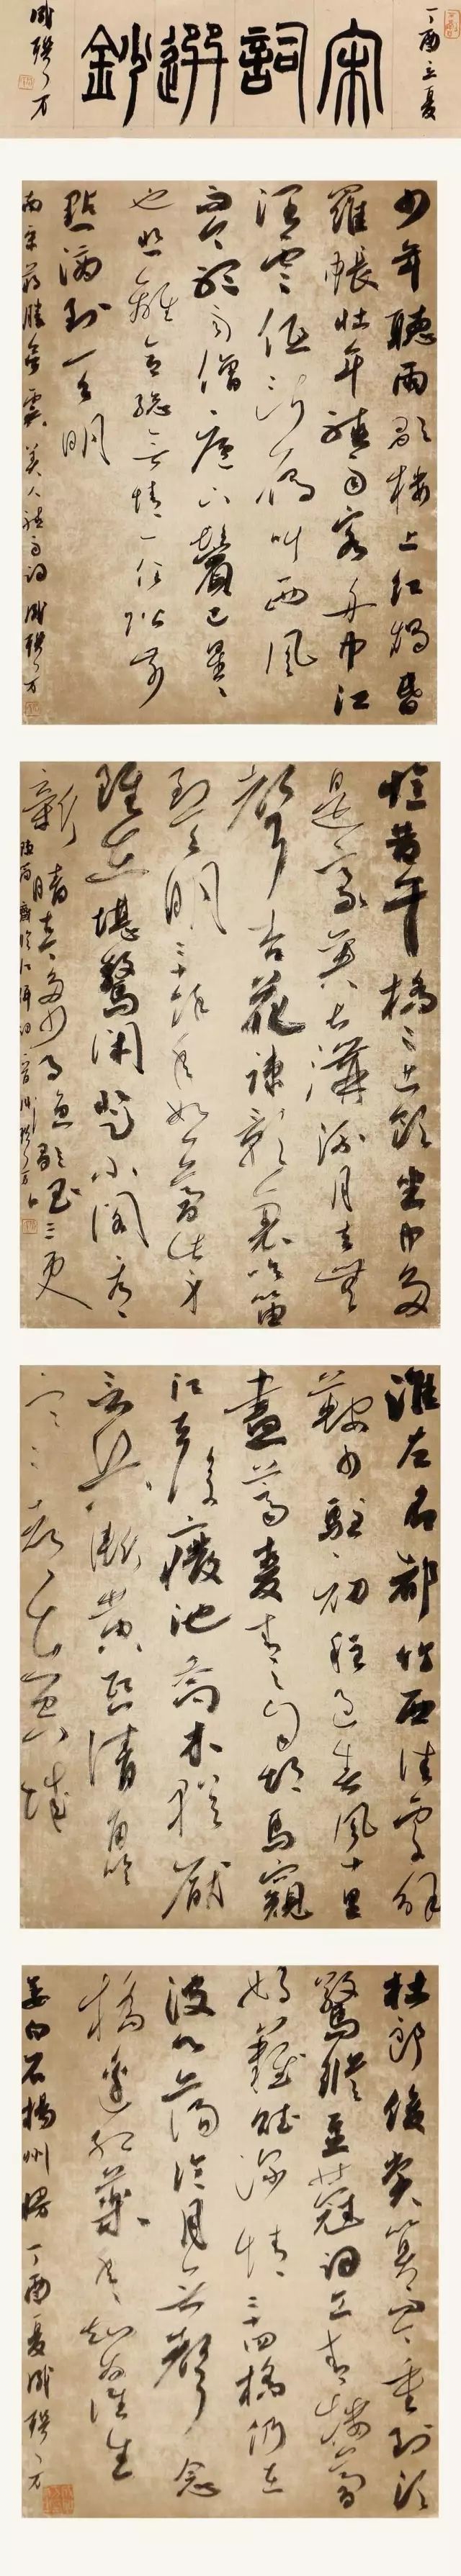 丁酉立夏
宋詞選鈔
成聯方
少年聽雨歌樓上紅燭昏
羅帳壯年聽雨客舟中江
闊雲低斷雁叫西風
而今聽雨僧廬下鬢已星〻
也悲離合總無情一任階前
點滴到天明
南宋蔣勝欲虞美人聽雨詞 成聯方
憶昔午橋〻上飲坐中多
是豪英長溝流月去無
聲杏花疎影裏吹笛
到天明二十餘年如一夢此身
雖在堪驚閑登小閣看
新晴古今多少事漁唱起三更
陳簡齋臨江仙詞
淮左名都竹西佳處解
鞍少駐初程過春風十里
盡薺麥青〻自胡馬窺
江去後廢池喬木猶厭
言兵漸黃昏清角吹
寒〻都在空城
杜郎俊賞算而今重到須
驚縱豆蔻詞工青樓夢
好難賦深情二十四橋仍在
波心蕩冷月無聲念
橋邊紅藥年〻知為誰生
姜白石揚州慢丁酉夏成聯方